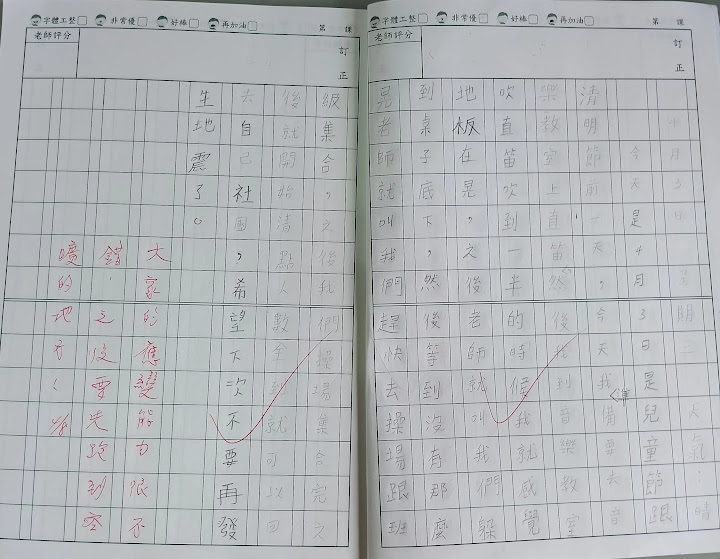 字體工整 非常優 好棒 再加油 第 課
老師評分
訂正
月3日 期三 天氣:晴
今天是4月3日是兒童節跟
清明節前一天,今天我準備要去音
樂教室上直笛,然後我到音樂教室
吹直笛吹到一半的時候我就感覺
地板在晃,之後老師就叫我們躲
到桌子底下,然後等到沒有那麼
晃老師就叫我們趕快去操場跟班
字體工整 非常優 好棒 再加油 第 課
老師評分
訂正
級集合,之後我們操場集合完之
後就開始清點人數全到就可以回
去自己社團,希望下次不要再發
生地震了。
大家的應變能力很不
錯,之後要先跑到空
曠的地方!